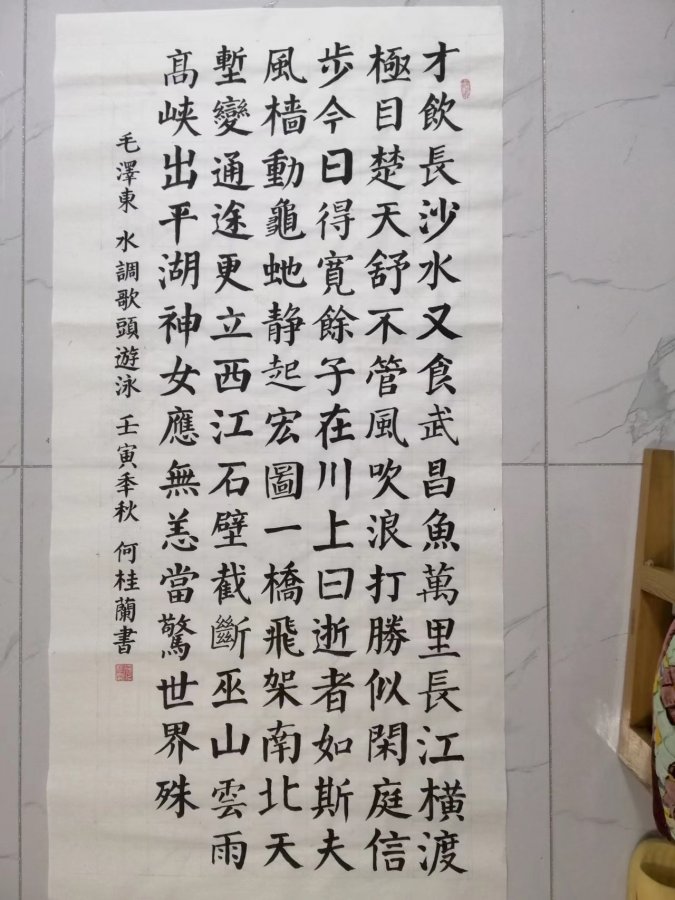 才飲長沙水又食武昌魚萬里長江橫渡
極目楚天舒不管風吹浪打勝似閑庭信
步今日得寬餘子在川上曰逝者如斯夫
風檣動龜虵静起宏圖一橋飛架南北天
塹變通途更立西江石壁截斷巫山雲雨
髙峽出平湖神女應無恙當驚世界殊
毛澤東 水調歌頭遊泳 壬寅季秋 何桂蘭書